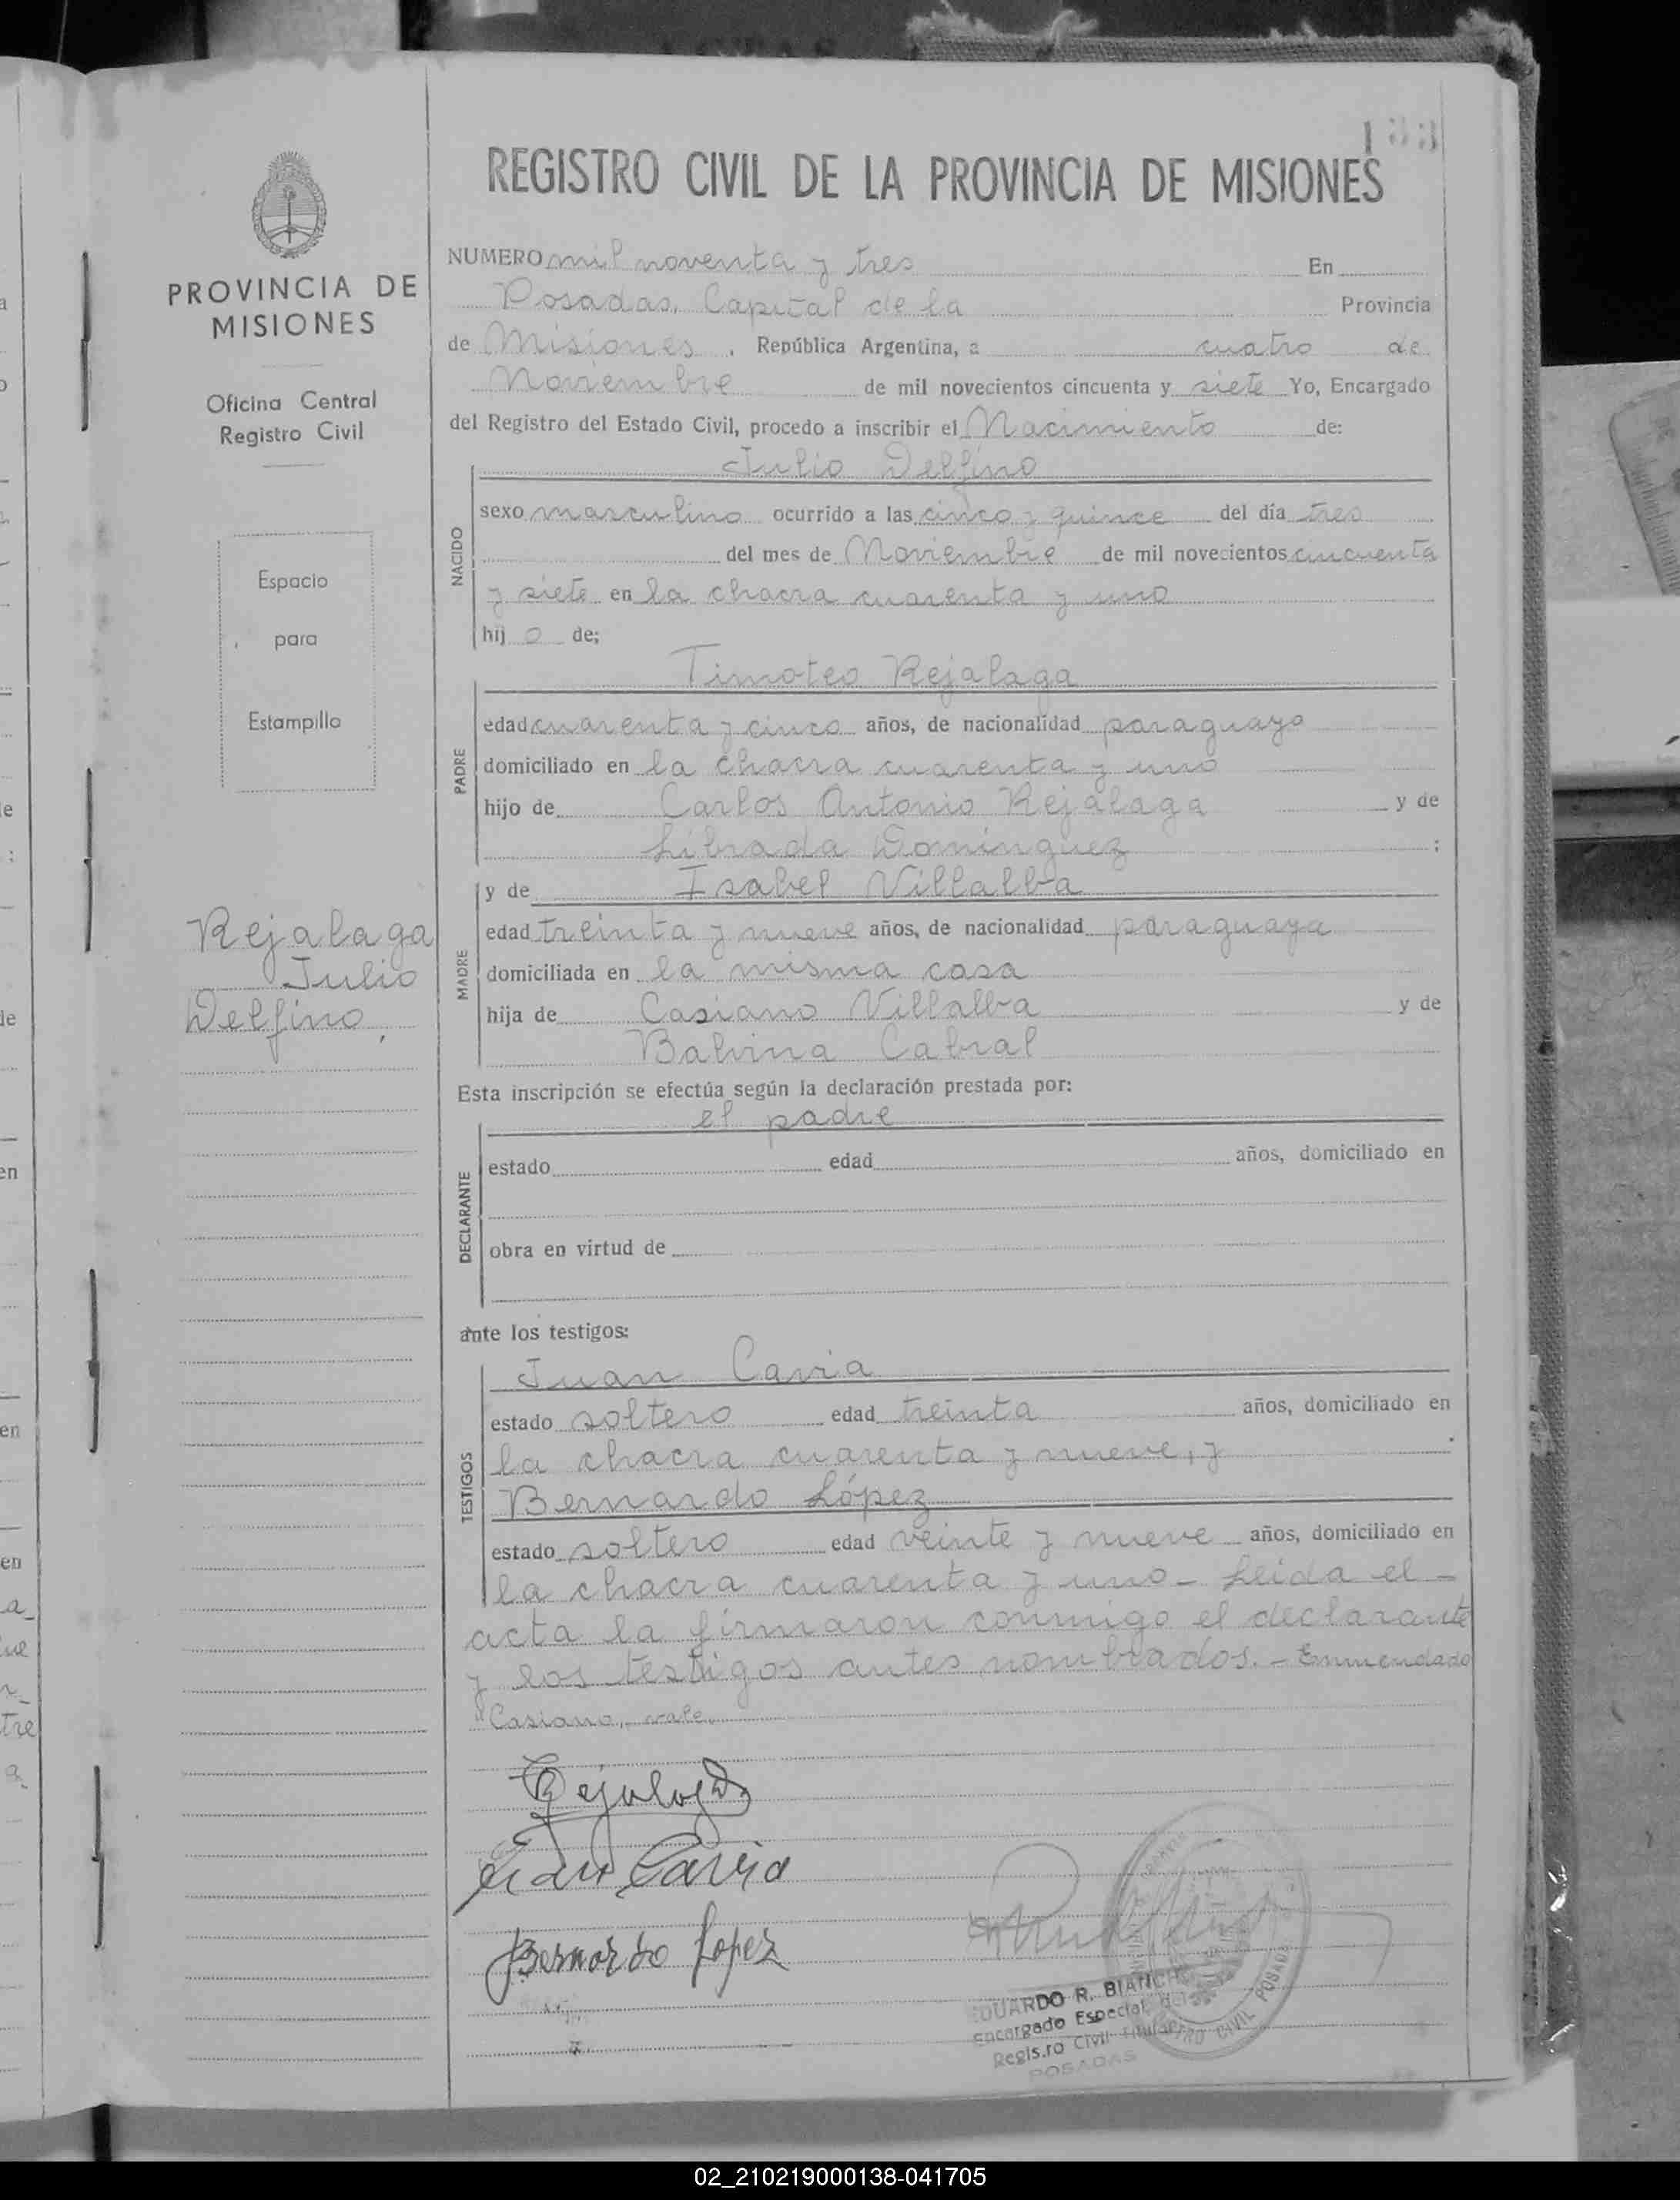 133
REGISTRO CIVIL DE LA PROVINCIA DE MISIONES
PROVINCIA DE
MISIONES
Oficina Central
Registro Civil
Espacio
para
Estampilla
Rejalaga
Julio
Delfino,
NUMERO mil noventa y tres En
Posadas, Capital de la Provincia
de Misiones, República Argentina, a cuatro de
Noviembre de mil novecientos cincuenta y siete Yo, Encargado
del Registro del Estado Civil, procedo a inscribir el Nacimiento de:
Julio Delfino
NACIDO
sexo masculino ocurrido a las cinco y quince del día tres
del mes de Noviembre de mil novecientos cincuenta
y siete en la chacra cuarenta y uno
hijo de;
Timoteo Rejalaga
PADRE
edad cuarenta y cinco años, de nacionalidad paraguayo
domiciliado en la chacra cuarenta y uno
hijo de Carlos Antonio Rejalaga y de
Librada Domínguez ;
y de Isabel Villalba
MADRE
edad treinta y nueve años, de nacionalidad paraguaya
domiciliada en la misma casa
hija de Casiano Villalba y de
Balvina Cabral
Esta inscripción se efectúa según la declaración prestada por:
el padre
DECLARANTE
estado edad años, domiciliado en
obra en virtud de
ante los testigos:
Juan Cavia
TESTIGOS
estado soltero edad treinta años, domiciliado en
la chacra cuarenta y nueve, y
Bernardo López
estado soltero edad veinte y nueve años, domiciliado en
la chacra cuarenta y uno - Leida el -
acta la firmaron conmigo el declarante
y los testigos antes nombrados. - Enmendado
"Casiano, vale.
Rejalaga
Juan Cavia
Bernardo Lopez
EDUARDO R. BIANCHI
Encargado Especial del
Regis.ro Civil Titular
POSADAS
CIVIL POSADAS
02_210219000138-041705